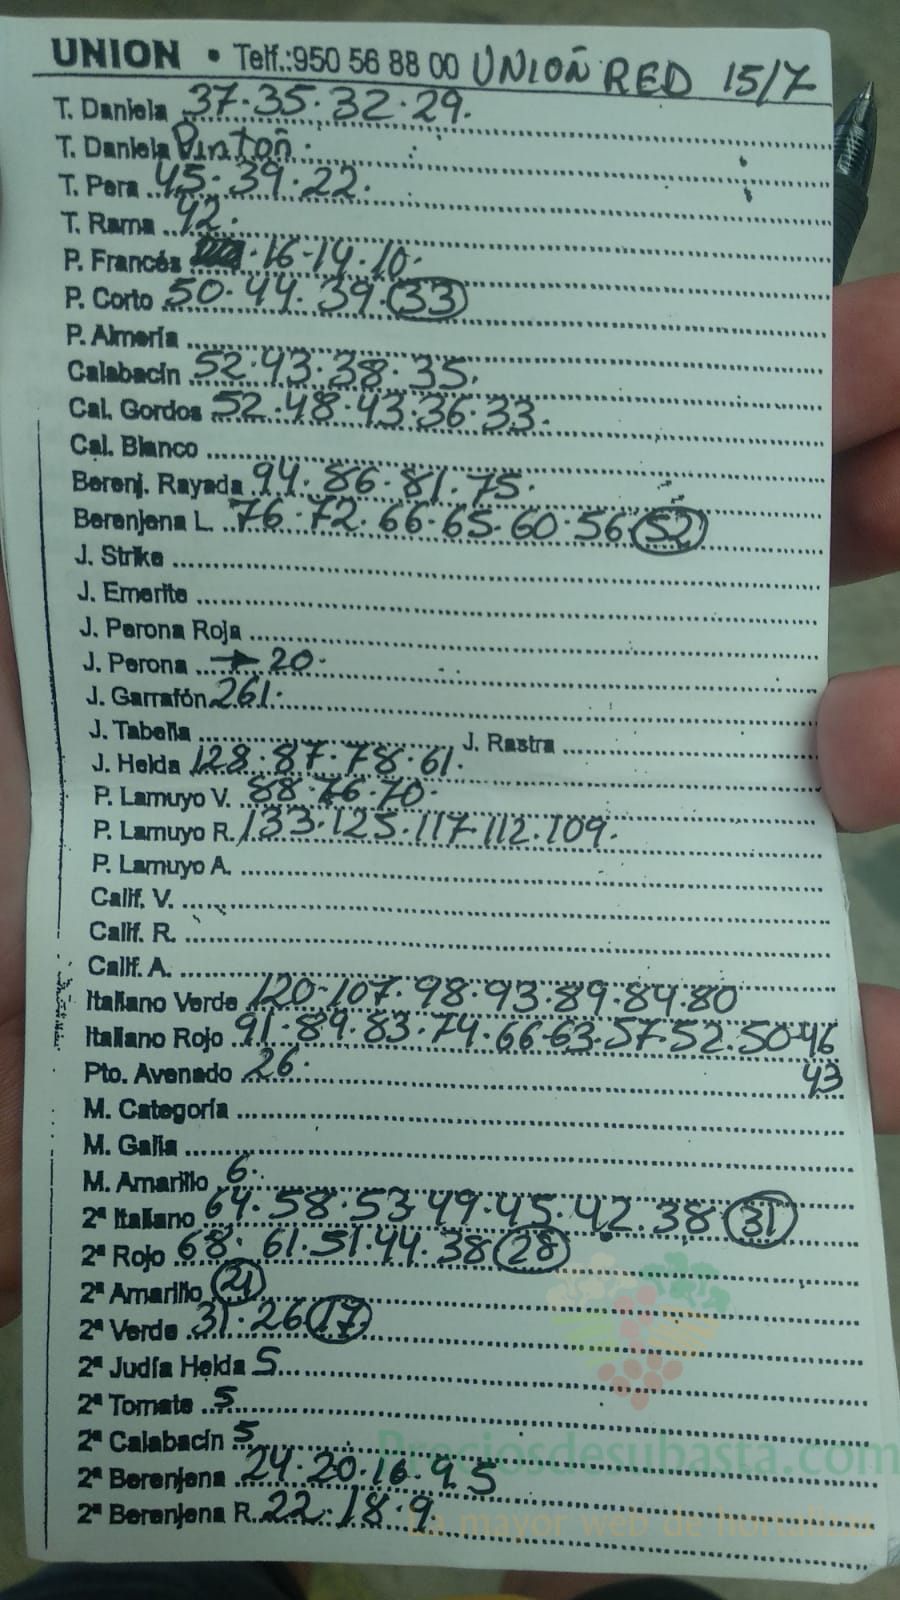 UNION • Telf.:950 56 88 00 UNION RED 15/7
T. Daniela 37.35.32.29.
T. Daniela Pinton.
T. Pera 45.39.22.
T. Rama 42.
P. Francés .16-14.10.
P. Corto 50.44.39.33
P. Almería
Calabacín 52.43.38.35.
Cal. Gordos 52.48.43.36.33.
Cal. Blanco
Berenj. Rayada 94.86.81.75.
Berenjena L. 76.72.66.65.60.56.52
J. Strike
J. Emerite
J. Perona Roja
J. Perona → 20.
J. Garrafón 261.
J. Tabella J. Rastra
J. Helda 128.87.78.61.
P. Lamuyo V. 88.76.70.
P. Lamuyo R. 133.125.117.112.109.
P. Lamuyo A.
Calif. V.
Calif. R.
Calif. A.
Italiano Verde 120-107.98.93.89.84.80
Italiano Rojo 91.89.83.74.66-63.57-52.50-46
43
Pto. Avenado 26.
M. Categoría
M. Galia
M. Amarillo 6.
2ª Italiano 64.58.53.49.45.42.38.31
2ª Rojo 68.61.51.44.38 28
2ª Amarillo 21
2ª Verde 31.26 17
2ª Judía Helda 5
2ª Tomate 5
2ª Calabacín 5
2ª Berenjena 24.20.16.9.5
2ª Berenjena R. 22.18.9
Preciosdesubasta.com
La mayor web de hortalizas